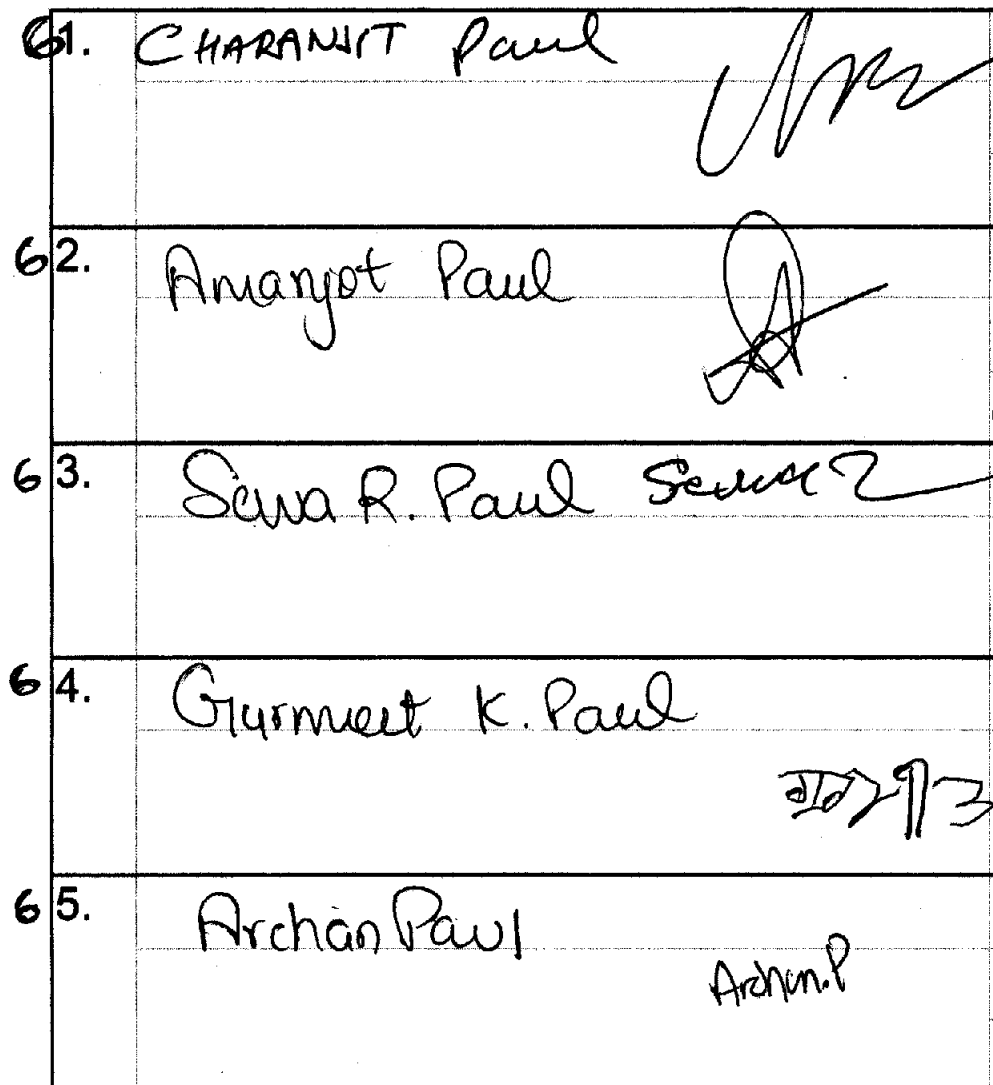 61. CHARANJIT Paul
62. Amanjot Paul
63. Sewa R. Paul Sewa R
64. Gurmeet K. Paul
65. Archan Paul
Archan.P